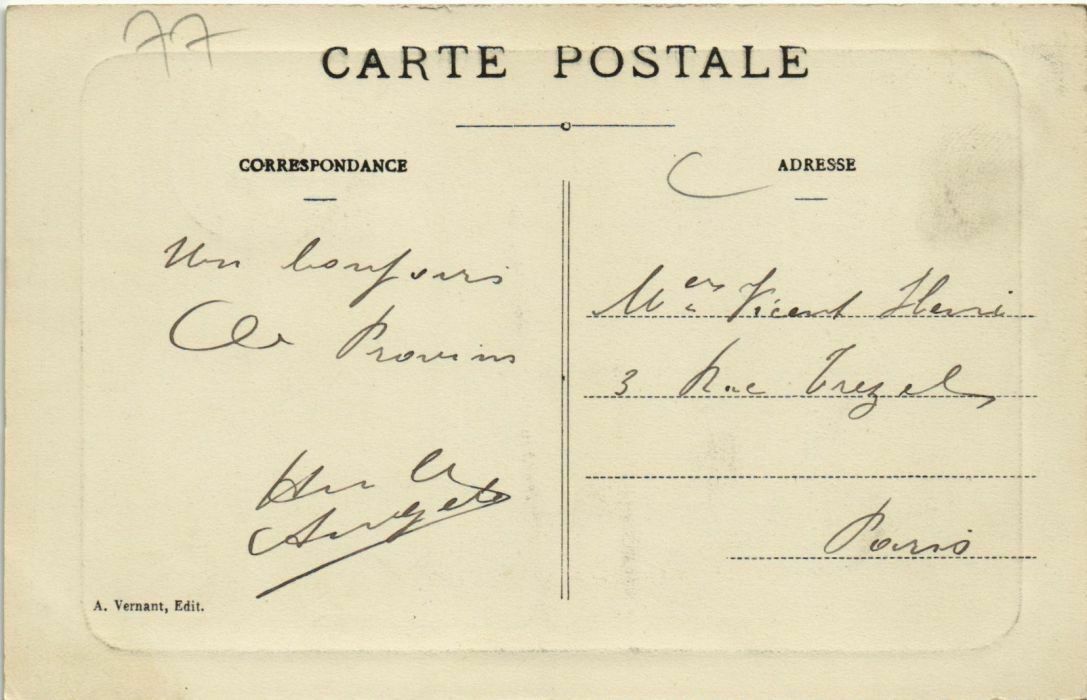 77
CARTE POSTALE
CORRESPONDANCE
Un bonjours
De Provins
A. Vernant, Edit.
ADRESSE
Vicent Henri
3 Rue Trezel
Paris